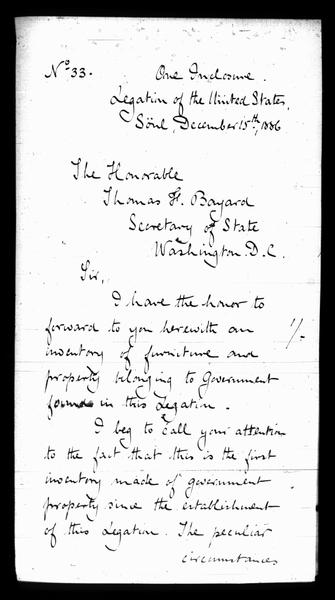 No 33. One Inclosure.
Legation of the United States,
Söul, December 15th, 1886
The Honorable
Thomas F. Bayard
Secretary of State
Washington. D.C.
Sir,
I have the honor to
forward to you herewith an 1/.
inventory of furniture and
property belonging to Government
found in this Legation.
I beg to call your attention
to the fact that this is the first
inventory made of government
property since the establishment
of this Legation. The peculiar
circumstances